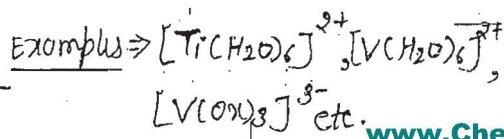 Examples ⇒ [Ti(H2O)6]²⁺, [V(H2O)6]³⁺,
[V(OX)3]³⁻ etc.
www.Che